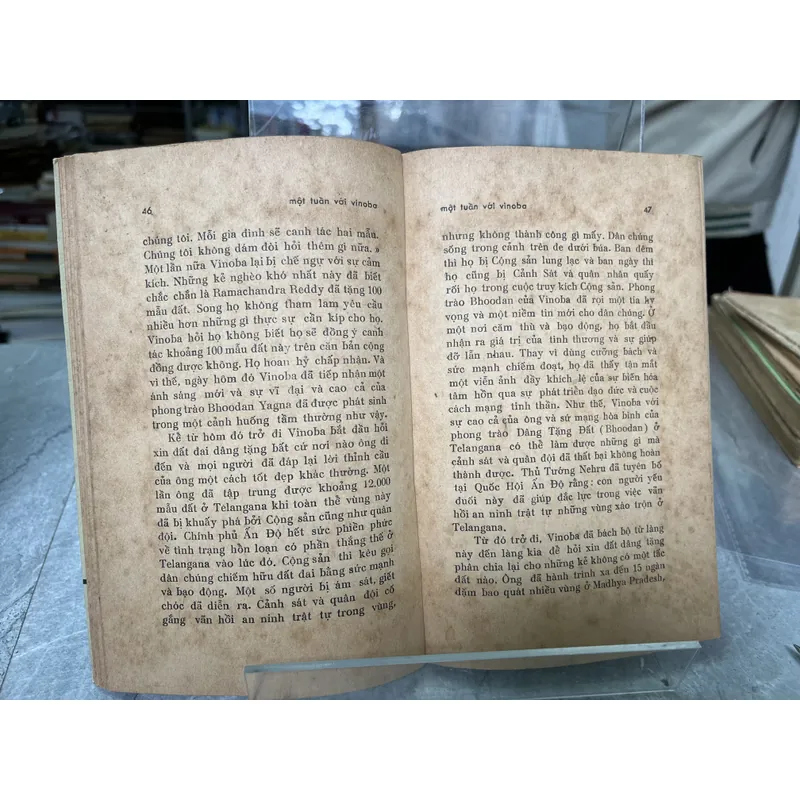 46
một tuần với vinoba
chúng tôi. Mỗi gia đình sẽ canh tác hai mẫu.
Chúng tôi không dám đòi hỏi thêm gì nữa. »
Một lần nữa Vinoba lại bị chế ngự với sự cảm
kích. Những kẻ nghèo khó nhất này đã biết
chắc chắn là Ramachandra Reddy đã tặng 100
mẫu đất. Song họ không tham lam yêu cầu
nhiều hơn những gì thực sự cần kíp cho họ.
Vinoba hỏi họ không biết họ sẽ đồng ý canh
tác khoảng 100 mẫu đất này trên căn bản cộng
đồng được không. Họ hoan hỷ chấp nhận. Và
vì thế, ngày hôm đó Vinoba đã tiếp nhận một
ánh sáng mới và sự vĩ đại và cao cả của
phong trào Bhoodan Yagna đã được phát sinh
trong một cảnh huống tầm thường như vậy.
Kể từ hôm đó trở đi Vinoba bắt đầu hỏi
xin đất đai dâng tặng bất cứ nơi nào ông đi
đến và mọi người đã đáp lại lời thỉnh cầu
của ông một cách tốt đẹp khác thường. Một
lần ông đã tập trung được khoảng 12.000
mẫu đất ở Telangana khi toàn thể vùng này
đã bị khuấy phá bởi Cộng sản cũng như quân
đội. Chính phủ Ấn Độ hết sức phiền phức
về tình trạng hỗn loạn có phần thắng thế ở
Telangana vào lúc đó. Cộng sản thì kêu gọi
dân chúng chiếm hữu đất đai bằng sức mạnh
và bạo động. Một số người bị ám sát, giết
chóc đã diễn ra. Cảnh sát và quân đội cố
gắng vãn hồi an ninh trật tự trong vùng,
một tuần với vinoba
47
nhưng không thành công gì mấy. Dân chúng
sống trong cảnh trên đe dưới búa. Ban đêm
thì họ bị Cộng sản lung lạc và ban ngày thì
họ cũng bị Cảnh Sát và quân nhân quấy
rối họ trong cuộc truy kích Cộng sản. Phong
trào Bhoodan của Vinoba đã rọi một tia kỳ
vọng và một niềm tin mới cho dân chúng. Ở
một nơi căm thù và bạo động, họ bắt đầu
nhận ra giá trị của tình thương và sự giúp
đỡ lẫn nhau. Thay vì dùng cưỡng bách và
sức mạnh chiếm đoạt, họ đã thấy tận mắt
một viễn ảnh đầy khích lệ của sự biến hóa
tâm hồn qua sự phát triển đạo đức và cuộc
cách mạng tinh thần. Như thế, Vinoba với
sự cao cả của ông và sứ mạng hòa bình của
phong trào Dâng Tặng Đất (Bhoodan) ở
Telangana có thể làm được những gì mà
cảnh sát và quân đội đã thất bại không hoàn
thành được. Thủ Tướng Nehru đã tuyên bố
tại Quốc Hội Ấn Độ rằng: con người yếu
đuối này đã giúp đắc lực trong việc vãn
hồi an ninh trật tự những vùng xáo trộn ở
Telangana.
Từ đó trở đi, Vinoba đã bách bộ từ làng
này đến làng kia để hỏi xin đất dâng tặng
phân chia lại cho những kẻ không có một tấc
đất nào. Ông đã hành trình xa đến 15 ngàn
dặm bao quát nhiều vùng ở Madhya Pradesh,